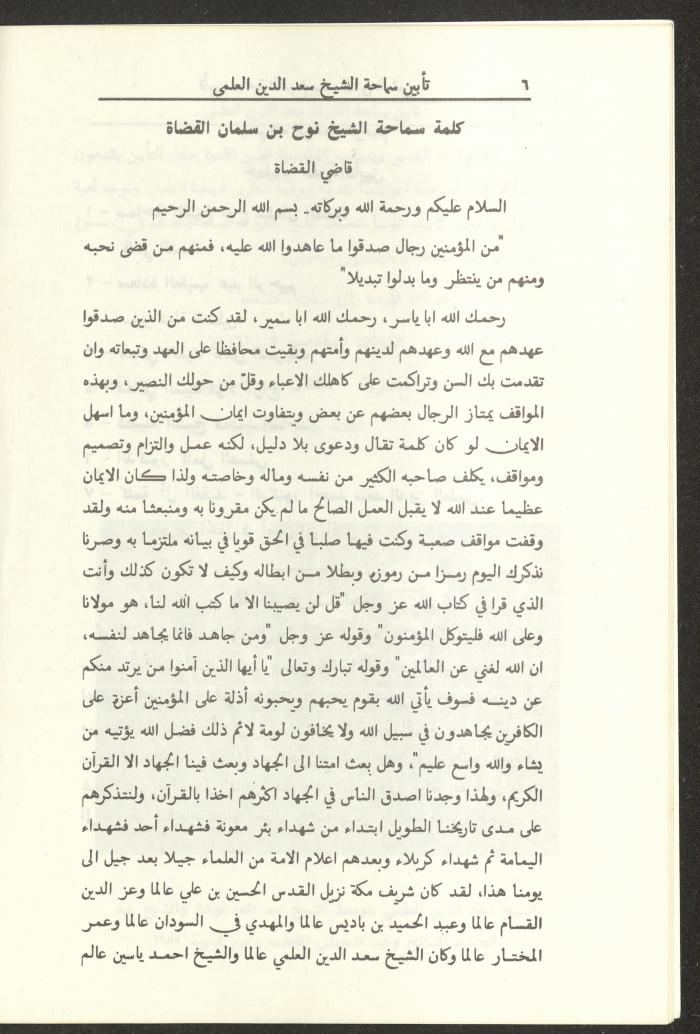 ٦ تأبين سماحة الشيخ سعد الدين العلمي
كلمة سماحة الشيخ نوح بن سلمان القضاة
قاضي القضاة
السلام عليكم ورحمة الله وبركاته- بسم الله الرحمن الرحيم
"من المؤمنين رجال صدقوا ما عاهدوا الله عليه، فمنهم من قضى نحبه
ومنهم من ينتظر وما بدلوا تبديلا"
رحمك الله ابا ياسر، رحمك الله ابا سمير، لقد كنت من الذين صدقوا
عهدهم مع الله وعهدهم لدينهم وأمتهم وبقيت محافظا على العهد وتبعاته وان
تقدمت بك السن وتراكمت على كاهلك الاعباء وقلّ من حولك النصير، وبهذه
المواقف يمتاز الرجال بعضهم عن بعض ويتفاوت ايمان المؤمنين، وما اسهل
الايمان لو كان كلمة تقال ودعوى بلا دليل، لكنه عمل والتزام وتصميم
ومواقف، يكلف صاحبه الكثير من نفسه وماله وخاصته ولذا كان الايمان
عظيما عند الله لا يقبل العمل الصالح ما لم يكن مقرونا به ومنبعثا منه ولقد
وقفت مواقف صعبة وكنت فيها صلبا في الحق قويا في بيانه ملتزما به وصرنا
نذكرك اليوم رمزا من رموزه وبطلا من ابطاله وكيف لا تكون كذلك وأنت
الذي قرا في كتاب الله عز وجل "قل لن يصيبنا الا ما كتب الله لنا، هو مولانا
وعلى الله فليتوكل المؤمنون" وقوله عز وجل "ومن جاهد فانما يجاهد لنفسه،
ان الله لغني عن العالمين" وقوله تبارك وتعالى "يا أيها الذين آمنوا من يرتد منكم
عن دينه فسوف يأتي الله بقوم يحبهم ويحبونه أذلة على المؤمنين أعزة على
الكافرين يجاهدون في سبيل الله ولا يخافون لومة لائم ذلك فضل الله يؤتيه من
يشاء والله واسع عليم"، وهل بعث امتنا الى الجهاد وبعث فينا الجهاد الا القرآن
الكريم، ولهذا وجدنا اصدق الناس في الجهاد اكثرهم اخذا بالقرآن، ولنتذكرهم
على مدى تاريخنا الطويل ابتداء من شهداء بئر معونة فشهداء أحد فشهداء
اليمامة ثم شهداء كربلاء وبعدهم اعلام الامة من العلماء جيلا بعد جيل الى
يومنا هذا، لقد كان شريف مكة نزيل القدس الحسين بن علي عالما وعز الدين
القسام عالما وعبد الحميد بن باديس عالما والمهدي في السودان عالما وعمر
المختار عالما وكان الشيخ سعد الدين العلمي عالما والشيخ احمد ياسين عالم